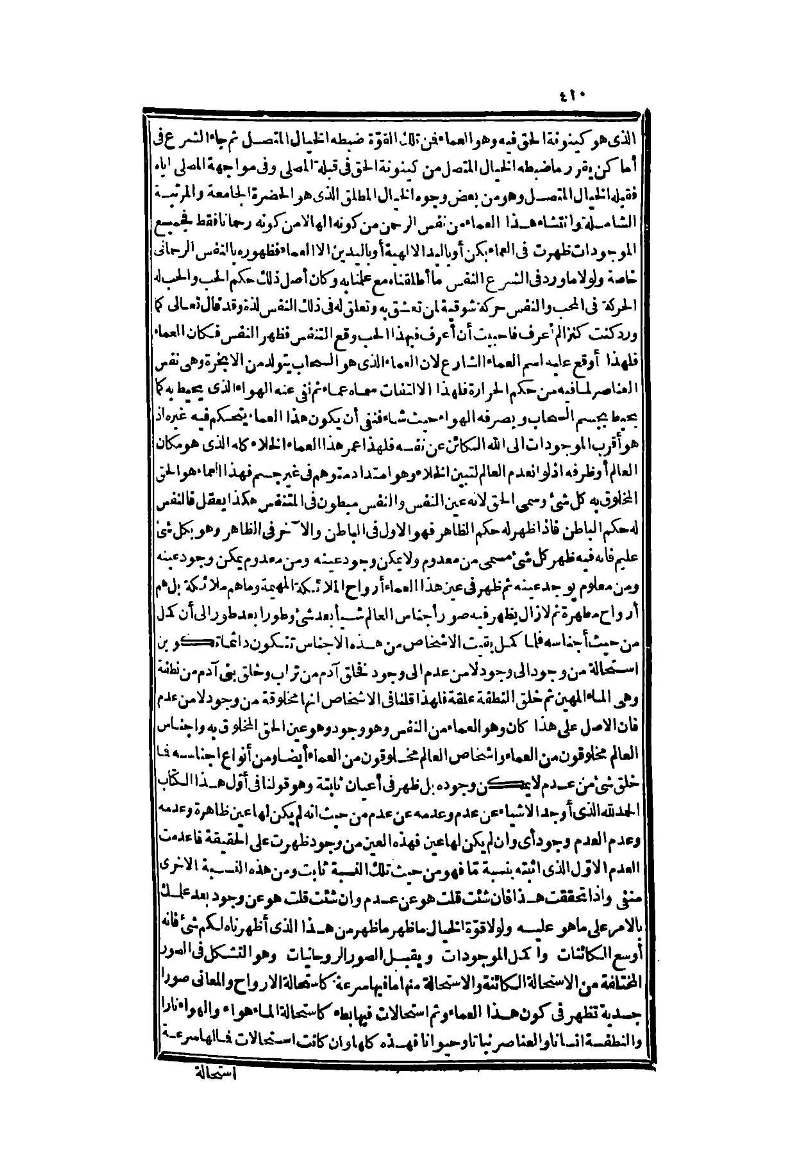 ٤١٠
الذى هو كينونة الحق فيه وهو العماء فن تلك القوّة ضبطه الخيال المتصل ثم جاء الشرع فى
أماكن يقرر ما ضبطه الخيال المتصل من كينونة الحق فى قبلة المصلى وفى مواجهة المصلى اياه
فقبله الخيال المتصل وهو من بعض وجوه الخيال المطلق الذى هو الحضرة الجامعة والمرتبة
الشاملة وانتشاء هذا العماء من نفس الرحمن من كونه الها لا من كونه رحمانا فقط فجميع
الموجودات ظهرت فى العماء بكن أو باليد الالهية أو باليدين الا العماء فظهوره بالنفس الرحمانى
خاصة ولولا ما ورد فى الشرع النفس ما أطلقناه مع علمنا به وكان أصل ذلك حكم الحب والحب له
الحركة فى المحب والنفس حركة شوقية لمن تعشق به وتعلق له فى ذلك النفس لذة وقد قال تعالى كما
ورد كنت كنزا لم أعرف فاحببت أن أعرف فبهذا الحب وقع التنفس فظهر النفس فكان العماء
فلهذا أوقع عليه اسم العماء الشارع لان العماء الذى هو السحاب يتولد من الابخرة وهى نفس
العناصر لما فيه من حكم الحرارة فلهذا الالتفات سماه عماء ثم نفى عنه الهواء الذى يحيط به كما
يحيط بجسم السحاب ويصرفه الهواء حيث شاء فنفى أن يكون هذا العماء يتحكم فيه غيره اذ
هو أقرب الموجودات الى الله الكائن عن نفسه فلهذا عمر هذا العماء الخلاء كله الذى هو مكان
العالم أو ظرفه اذ لو انعدم العالم لتبين الخلاء وهو امتداد متوهم فى غير جسم فهذا العماء هو الحق
المخلوق به كل شئ وسمى الحق لانه عين النفس والنفس مبطون فى المتنفس هكذا يعقل فالنفس
له حكم الباطن فاذا ظهر له حكم الظاهر فهو الاول فى الباطن والآخر فى الظاهر وهو بكل شئ
عليم فانه فيه ظهر كل شئ مسمى من معدوم ولا يمكن وجود عينه ومن معدوم يمكن وجود عينه
ومن معلوم يوجد عينه ثم ظهر فى عين هذا العماء أرواح الملائكة المهيمة وماهم ملائكة بل هم
أرواح مطهرة ثم لازال يظهر فيه صور أجناس العالم شيأ بعد شئ وطورا بعد طور الى أن كمل
من حيث أجناسه فلما كمل بقيت الاشخاص من هذه الاجناس تتكون دائما تكوين
استحالة من وجود الى وجود لا من عدم الى وجود فخلق آدم من تراب وخلق بنى آدم من نطفة
وهى الماء المهين ثم خلق النطفة علقة فلهذا قلنا فى الاشخاص انها مخلوقة من وجود لا من عدم
فان الاصل على هذا كان وهو العماء من النفس وهو وجود وهو عين الحق المخلوق به واجناس
العالم مخلوقون من العماء واشخاص العالم مخلوقون من العماء أيضا ومن أنواع اجناسه فما
خلق شئ من عدم لا يمكن وجوده بل ظهر فى أعيان ثابتة وهو قولنا فى أوّل هذا الكتاب
الحمد لله الذى أوجد الاشياء عن عدم وعدمه عن عدم من حيث انه لم يكن لها عين ظاهرة وعدمه
وعدم العدم وجود أى وان لم يكن لها عين فهذه العين من وجود ظهرت على الحقيقة فاعدمت
العدم الاوّل الذى اثبته بنسبة مّا فهو من حيث تلك النسبة ثابت ومن هذه النسبة الاخرى
منفى واذا تحققت هذا فان شئت قلت هو عن عدم وان شئت قلت هو عن وجود بعد علمك
بالامر على ما هو عليه ولولا قوّة الخيال ما ظهر ما ظهر من هذا الذى أظهرناه لكم شئ فانه
أوسع الكائنات وأكمل الموجودات ويقبل الصور الروحانيات وهو التشكل فى الصور
المختلفة من الاستحالة الكائنة والاستحالة منها ما فيها سرعة كاستحالة الارواح والمعانى صورا
جسدية تظهر فى كون هذا العماء وثم استحالات فيها بطء كاستحالة الماء هواء والهواء نارا
والنطفة انسانا والعناصر نباتا وحيوانا فهذه كلها وان كانت استحالات فما لها سرعة
استحالة